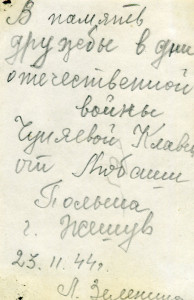 В память
дружбы в дни
отечественной
войны
Чуяевой Клаве
от Любаши
Польша
г. Жешув
23. 11. 44г.
Л. Зеленина